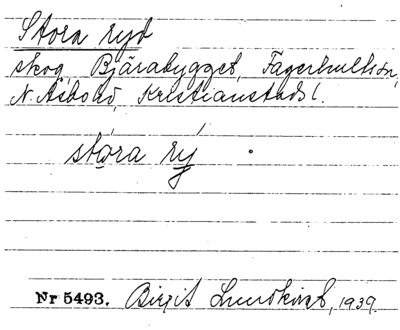 Stora ryd
skog, Bjärabygget, Fagerhultssn,
N. Åsbohd, Kristianstads l.
stora rý
Nr 5493. Birgit Lundkvist, 1939.